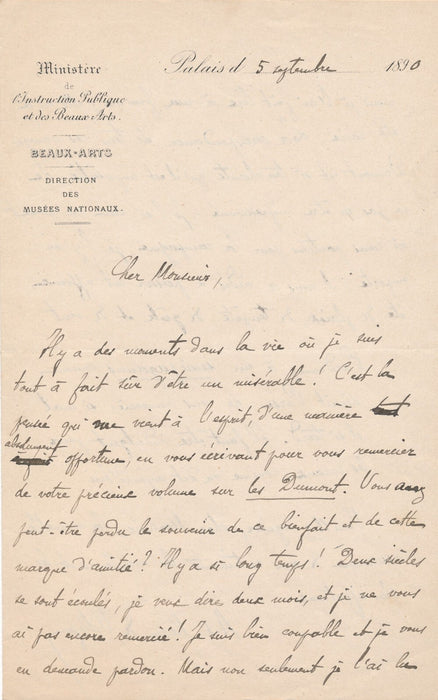 Ministère
de
l'Instruction Publique
et des Beaux-Arts.
BEAUX-ARTS
DIRECTION
DES
MUSÉES NATIONAUX.
Palais d 5 septembre 1890
Cher Monsieur,
Il y a des moments dans la vie où je suis
tout à fait sûr d'être un misérable ! C'est la
pensée qui me vient à l'esprit, d'une manière
absolument
opportune, en vous écrivant pour vous remercier
de votre précieux volume sur les Dumont. Vous avez
peut-être perdu le souvenir de ce bienfait et de cette
marque d'amitié ? Il y a si long temps ! Deux siècles
se sont écoulés, je veux dire deux mois, et je ne vous
ai pas encore remercié ! Je suis bien coupable et je vous
en demande pardon. Mais non seulement je l'ai lu